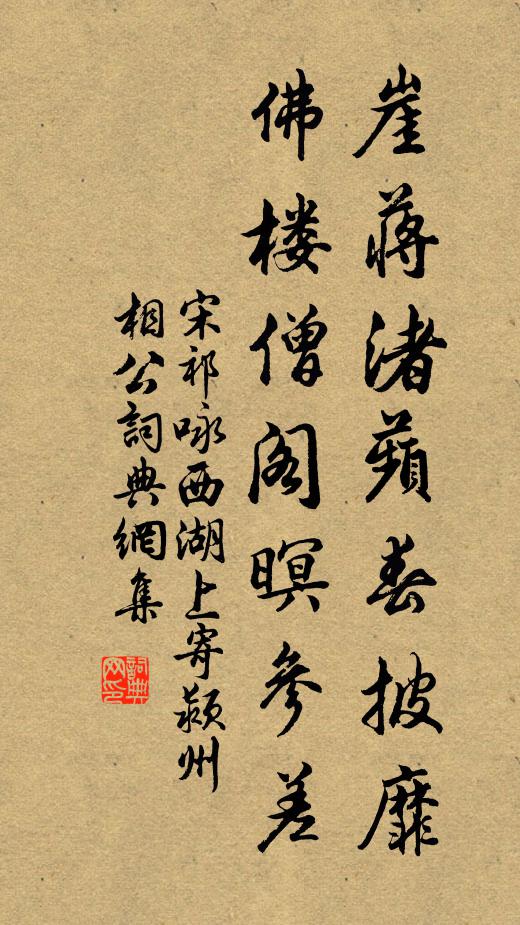 崖蒋渚蘋春披靡
佛楼僧阁暝参差
宋祁咏西湖上寄颍州
相公詞典網集
詞典網印